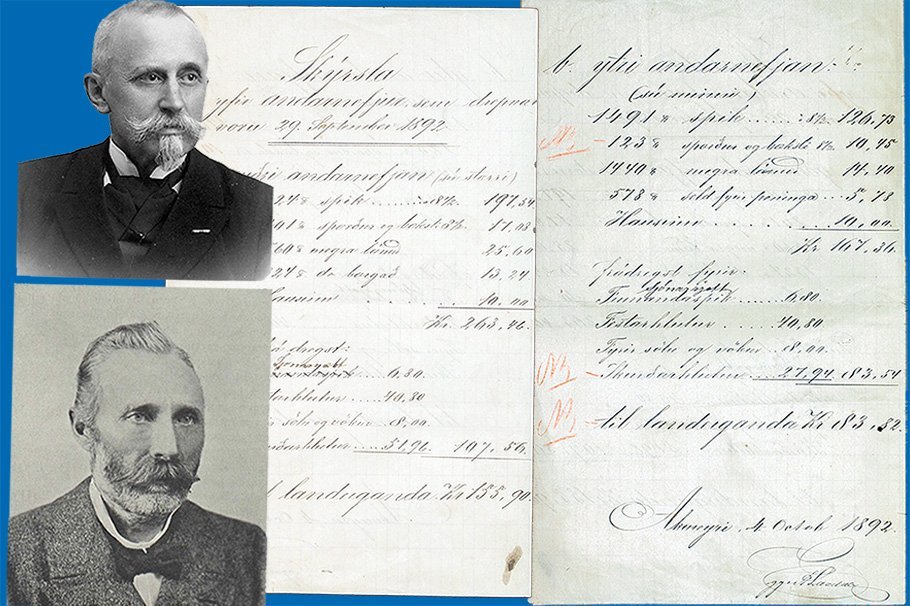 Skýrsla
yfir andarnefjur, sem drepnar
voru 29. September 1892
andarnefjan (sú stærri)
24 " spik 8½ 197.54
91 " sporður og bægsli 8½ 11.08
60 " megra 25.60
24 " do borgað 13.24
Hausinn 10.00
Kr. 263,46
dregst:
6.80
40.80
sölu og vöktun 8.00
51.96 107,56
landeiganda Kr 155.90
b. yfir andarnefjan:
(sú minni)
1491 " spik 8½ 126,73
123 " sporður og bægsli 8½ 10,45
1440 " megra 14.40
578 " seld fyrir peninga 5,78
Hausinn 10,00
Kr 167,36
Frádregst fyrir:
Finnandaspik 6.80
Festarhlutur 40,80
Fyrir sölu og vöktun 8.00
Skurðarhlutur 27.94 83,54
til landeiganda Kr 83,82
Akureyri, 4. Octob 1892.